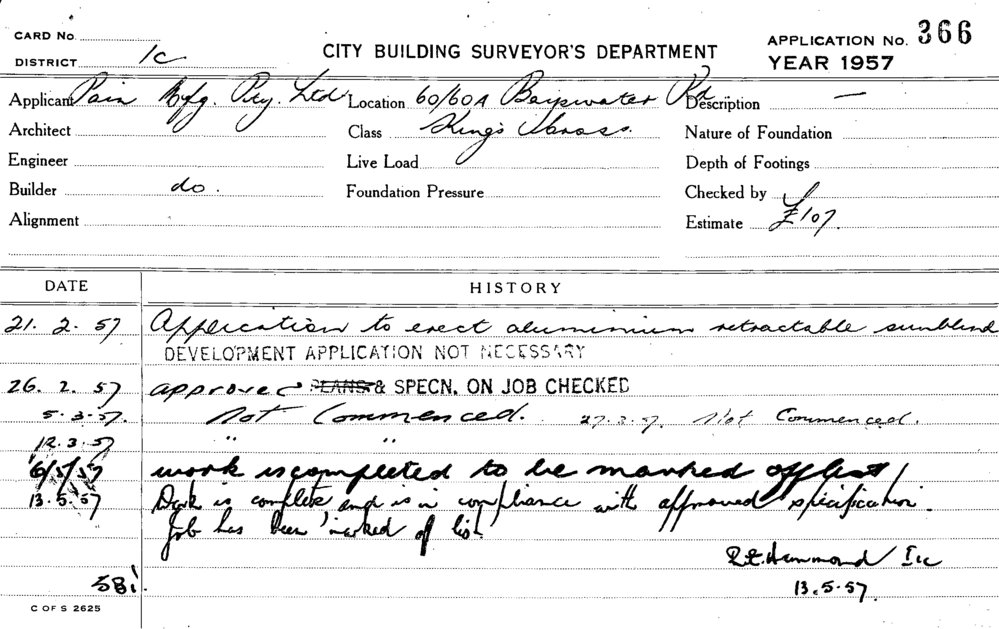 CARD No.
CITY BUILDING SURVEYOR'S DEPARTMENT
APPLICATION No. 366
DISTRICT 1c
YEAR 1957
Applicant Pain Mfg. Pty. Ltd Location 60/60A Bayswater Rd Description —
Architect Class Kings Cross. Nature of Foundation
Engineer Live Load Depth of Footings
Builder do. Foundation Pressure Checked by
Alignment Estimate £107.
DATE HISTORY
21. 2. 57 Application to erect aluminium retractable sunblind
DEVELOPMENT APPLICATION NOT NECESSARY
26. 2. 57 approved PLANS & SPECN. ON JOB CHECKED
5.3.57. Not Commenced. 27.3.57. Not Commenced.
12.3.57 " "
6/5/57 work is completed to be marked off list
13.5.57 Work is complete and is in compliance with approved specification.
Job has been marked of list
R.E. Hammond
13.5.57.
58
C OF S 2625